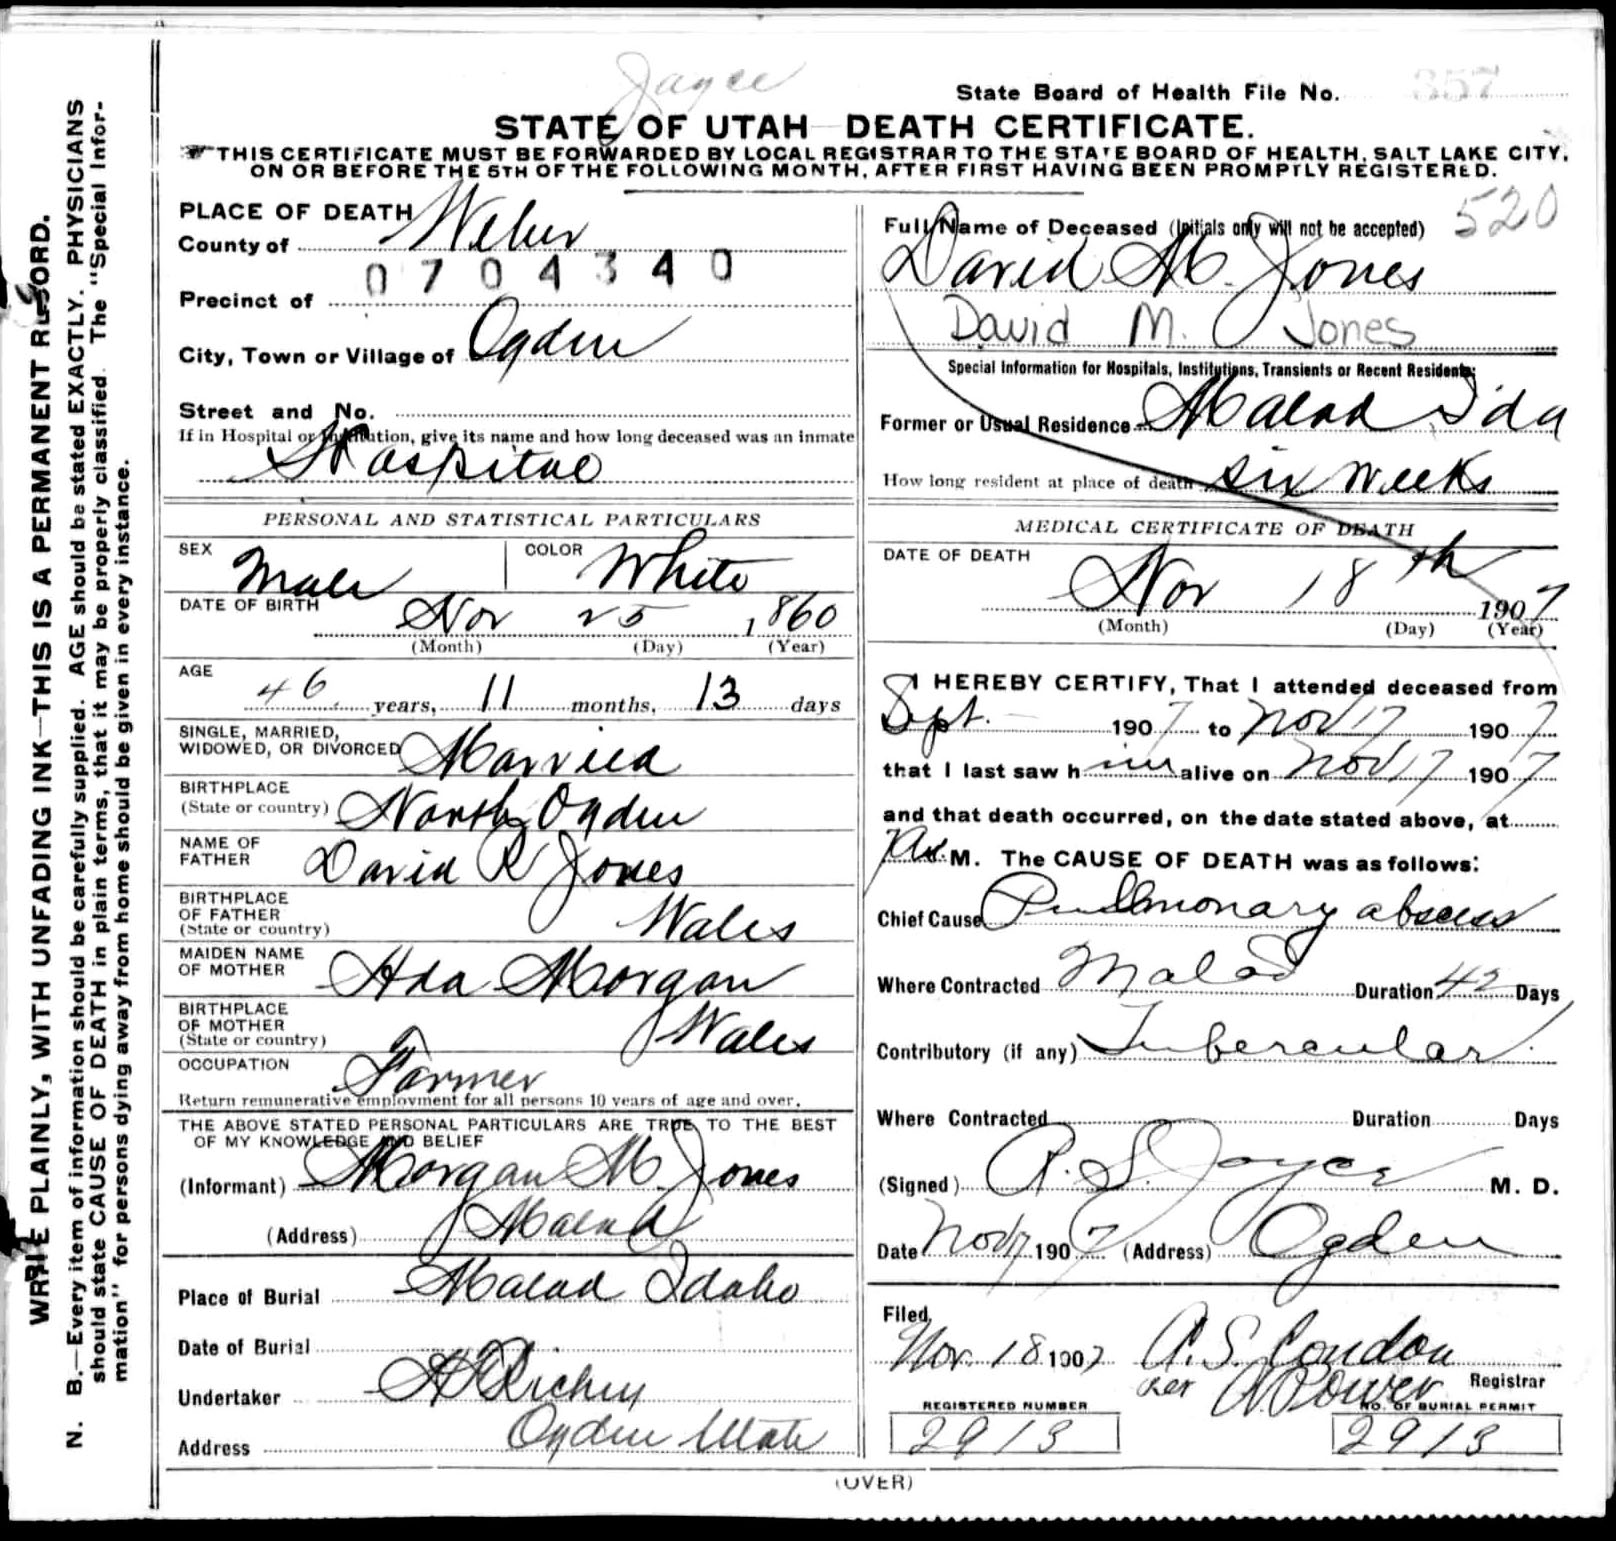 Jayce
State Board of Health File No. 357
STATE OF UTAH—DEATH CERTIFICATE.
THIS CERTIFICATE MUST BE FORWARDED BY LOCAL REGISTRAR TO THE STATE BOARD OF HEALTH, SALT LAKE CITY,
ON OR BEFORE THE 5TH OF THE FOLLOWING MONTH, AFTER FIRST HAVING BEEN PROMPTLY REGISTERED.
WRITE PLAINLY, WITH UNFADING INK—THIS IS A PERMANENT RECORD.
N. B.—Every item of information should be carefully supplied. AGE should be stated EXACTLY. PHYSICIANS
should state CAUSE OF DEATH in plain terms, that it may be properly classified. The "Special Infor-
mation" for persons dying away from home should be given in every instance.
PLACE OF DEATH
County of Weber
0704340
Precinct of
City, Town or Village of Ogden
Street and No.
If in Hospital or Institution, give its name and how long deceased was an inmate
Hospital
PERSONAL AND STATISTICAL PARTICULARS
SEX Male COLOR White
DATE OF BIRTH Nov 25 1860
(Month) (Day) (Year)
AGE 46 years, 11 months, 13 days
SINGLE, MARRIED,
WIDOWED, OR DIVORCED Married
BIRTHPLACE
(State or country) North Ogden
NAME OF
FATHER David R Jones
BIRTHPLACE
OF FATHER
(State or country) Wales
MAIDEN NAME
OF MOTHER Ada Morgan
BIRTHPLACE
OF MOTHER
(State or country) Wales
OCCUPATION Farmer
Return remunerative employment for all persons 10 years of age and over.
THE ABOVE STATED PERSONAL PARTICULARS ARE TRUE TO THE BEST
OF MY KNOWLEDGE AND BELIEF
(Informant) Morgan M. Jones
(Address) Malad
Place of Burial Malad Idaho
Date of Burial
Undertaker Richey
Address Ogden Utah
520
Full Name of Deceased (Initials only will not be accepted)
David M. Jones
David M. Jones
Special Information for Hospitals, Institutions, Transients or Recent Residents:
Former or Usual Residence Malad Ida
How long resident at place of death six weeks
MEDICAL CERTIFICATE OF DEATH
DATE OF DEATH
Nov 18th 1907
(Month) (Day) (Year)
I HEREBY CERTIFY, That I attended deceased from
Sept. 1907 to Nov 17 1907
that I last saw him alive on Nov 17 1907
and that death occurred, on the date stated above, at
M. The CAUSE OF DEATH was as follows:
Chief Cause Pulmonary abscess
Where Contracted Malad Duration 42 Days
Contributory (if any) Tubercular
Where Contracted Duration Days
(Signed) R. S. Joyce M. D.
Date Nov 1907 (Address) Ogden
Filed,
Nov. 18 1907 A. S. Condon
per Power Registrar
REGISTERED NUMBER NO. OF BURIAL PERMIT
2913 2913
(OVER)